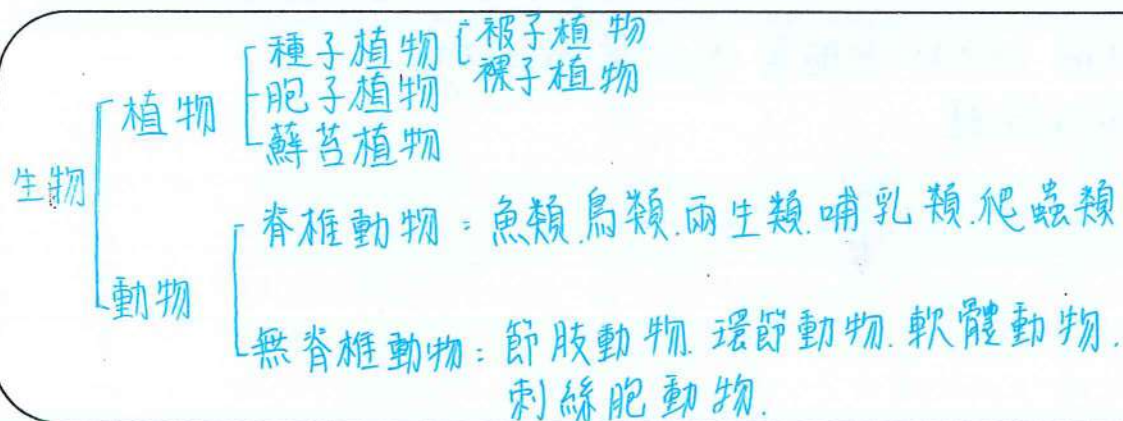 種子植物 被子植物
裸子植物
植物 胞子植物
蘚苔植物
生物
脊椎動物：魚類.鳥類.兩生類.哺乳類.爬蟲類
動物
無脊椎動物：節肢動物.環節動物.軟體動物.
刺絲胞動物.